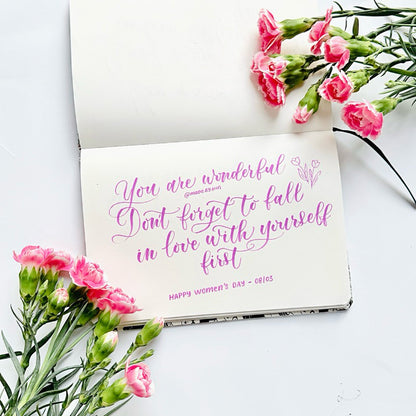 You are wonderful
Dont forget to fall
in love with yourself
first
HAPPY WOMEN'S DAY - 08/03